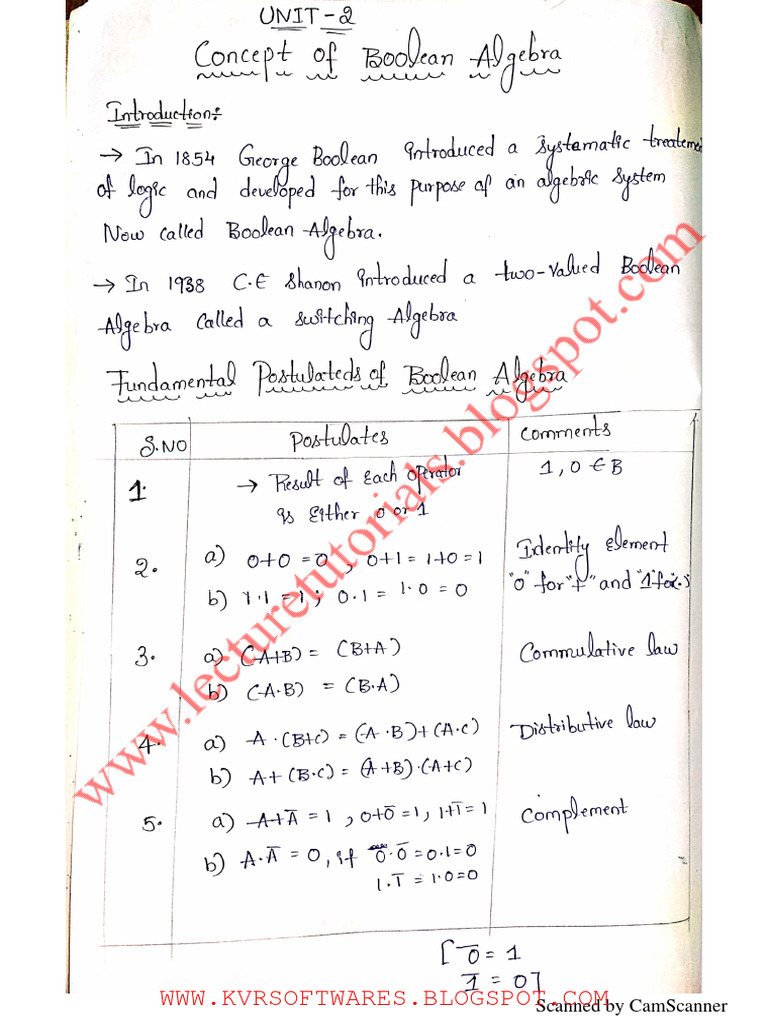 UNIT-2
Concept of Boolean Algebra
Introduction:
→ In 1854 George Boolean introduced a systematic treateme
of logic and developed for this purpose of an algebric system
Now called Boolean Algebra.
→ In 1938 C.E Shanon introduced a two-valued Boolean
Algebra called a switching Algebra
Fundamental Postulateds of Boolean Algebra
S.NO Postulates Comments
1. → Result of each operator 1, 0 ∈ B
is either 0 or 1
2. a) 0+0=0, 0+1=1+0=1 Identify element
b) 1·1=1; 0·1=1·0=0 "0" for "+" and "1" for
3. a) (A+B) = (B+A) Commulative law
b) (A·B) = (B·A)
4. a) A·(B+C)=(A·B)+(A·C) Distributive law
b) A+(B·C)=(A+B)·(A+C)
5. a) A+A̅=1, 0+0̅=1, 1+1̅=1 Complement
b) A·A̅=0, if 0·0̅=0·1=0
1·1̅=1·0=0
[0̅=1
1̅=0]
www.lecturetutorials.blogspot.com
WWW.KVRSOFTWARES.BLOGSPOT.COM
Scanned by CamScanner